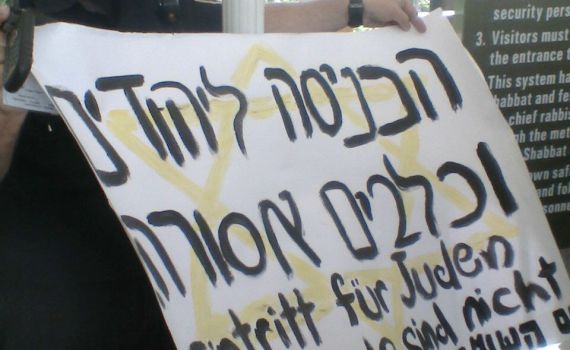 הכניסה ליהודים
וכלבים אסורה
eintritt für Juden
sind nicht
security pers
3. Visitors must
the entrance t
This system ha
habbat and fe
chief rabbis
gh the met
Shabbat
own saf
and fol
sonne